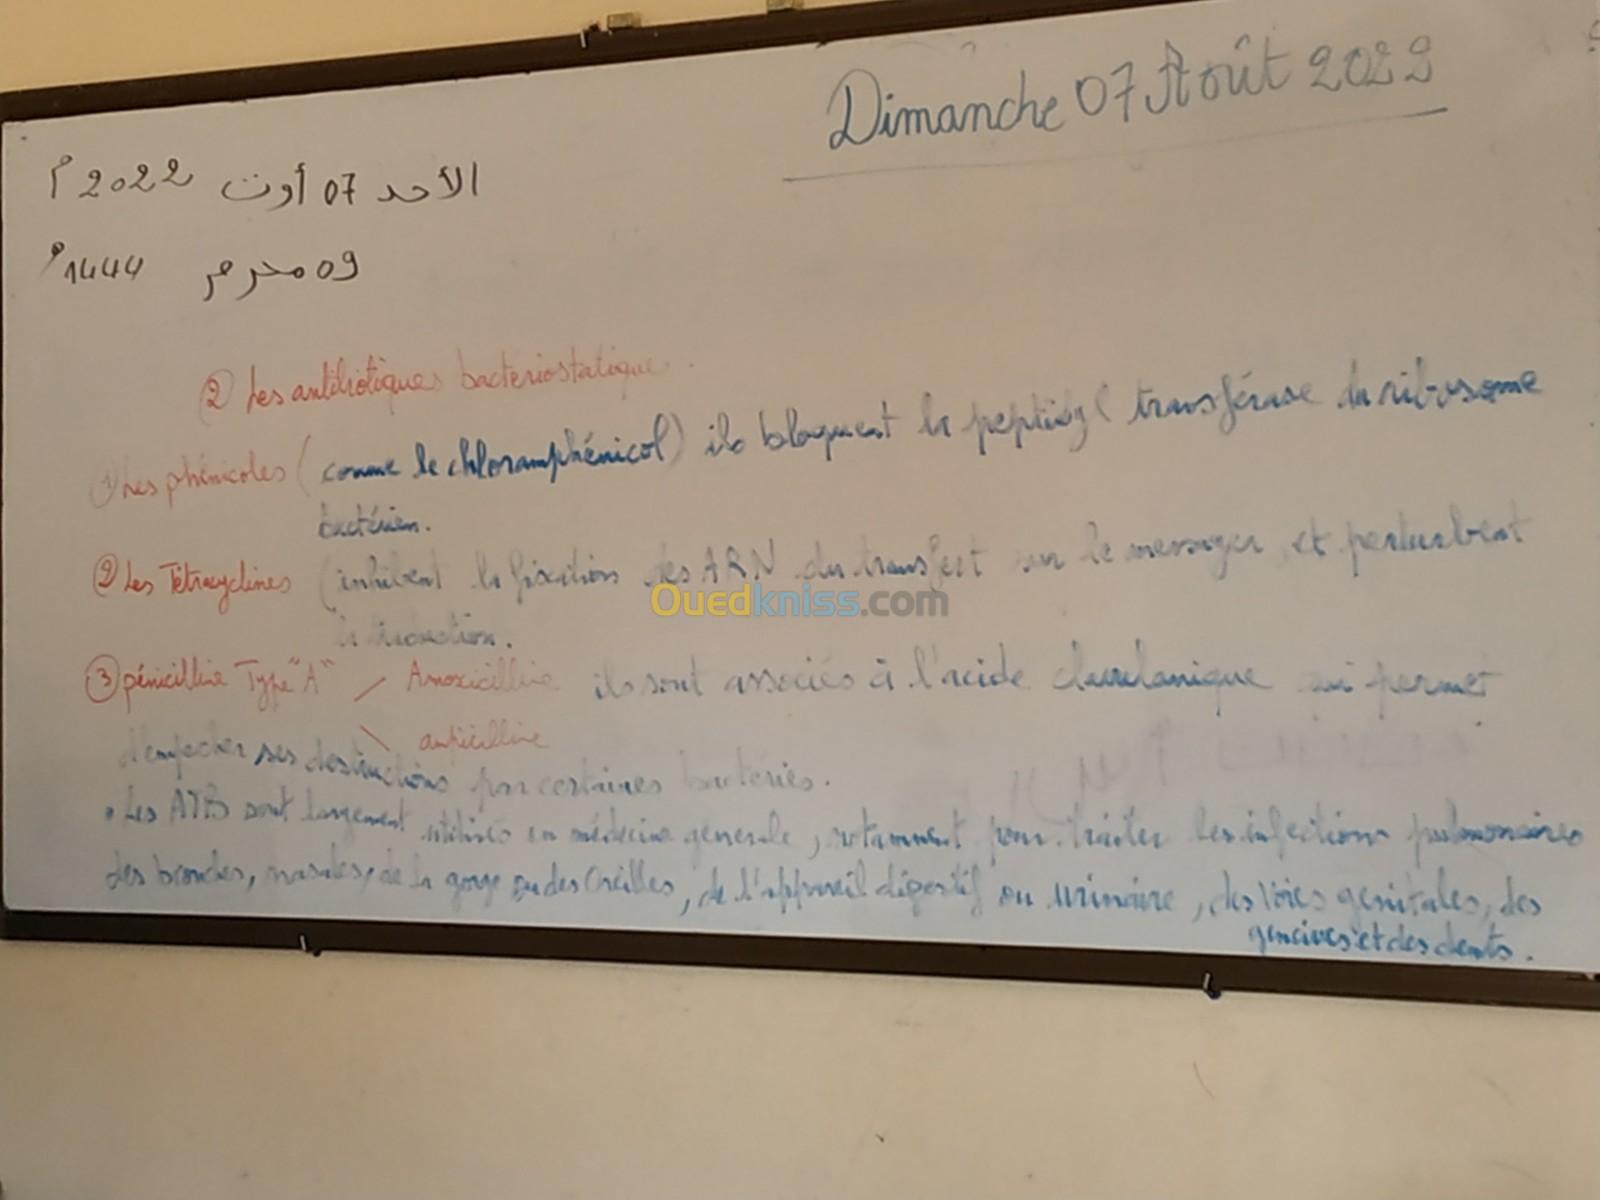 Dimanche 07 Août 2022
الأحد 07 أوت 2022 م
09 محرم 1444 ه
② Les antibiotiques bactériostatique.
① Les phénicoles ( comme le chloramphénicol) ils bloquent la peptidyl transférase du ribosome
bactérien.
② Les Tétracyclines (inhibent la fixation des ARN du transfert sur le messager et perturbent
la traduction.
③ pénicilline Type "A" Amoxicilline ils sont associés à l'acide clavulanique qui permet
ampicilline
d'empecher ses destructions par certaines bactéries.
• Les ATB sont largement utilisés en médecine générale, notamment pour traiter les infections pulmonaires
des bronches, nasales, de la gorge ou des Oreilles, de l'appareil digestif ou urinaire, des Voies génitales, des
gencives et des dents.
Ouedkniss.com